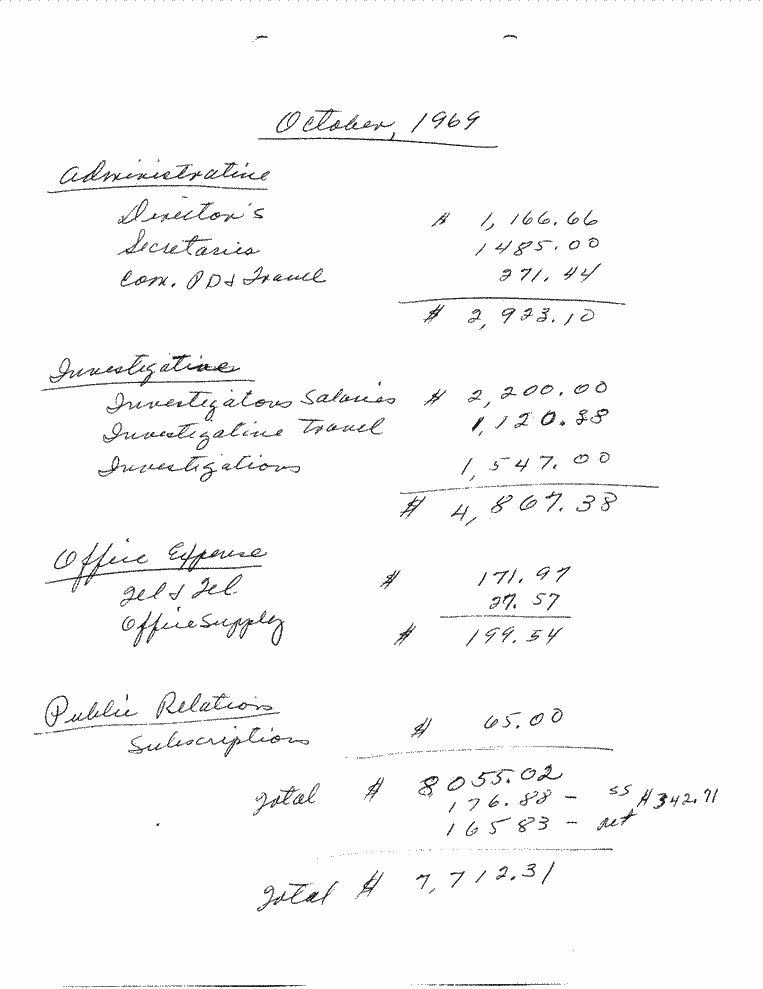 October, 1969
Administrative
Director's $ 1,166.66
Secretaries 1485.00
Com. PD & Travel 271.44
$ 2,923.10
Investigative
Investigators Salaries $ 2,200.00
Investigative Travel 1,120.38
Investigations 1,547.00
$ 4,867.38
Office Expense
Tel & Tel. $ 171.97
Office Supply 27.57
$ 199.54
Public Relations
Subscriptions $ 65.00
Total $ 8055.02
176.88 - SS $342.71
165 83 - ret
Total $ 7,712.31